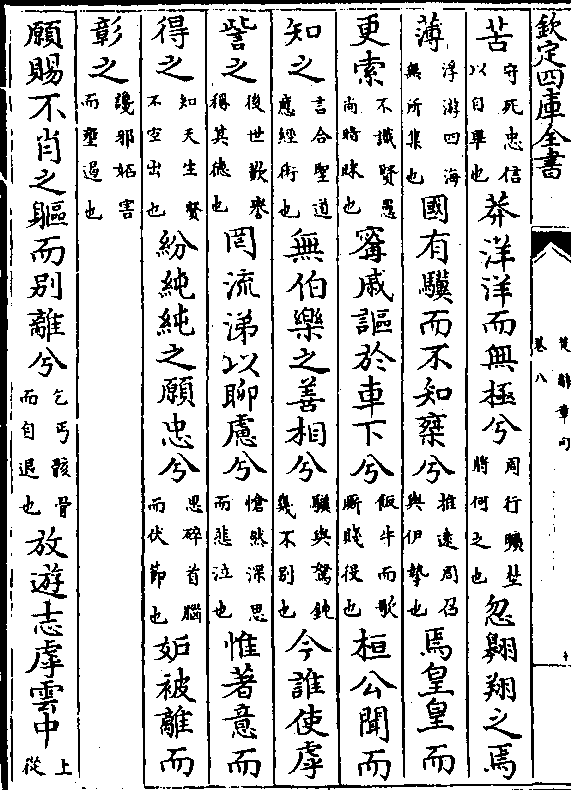 欽定四庫全書
楚辭章句
卷八
十
苦守死忠信以自畢也莽洋洋而無極兮周行曠埜將何之也忽翱翔之焉
薄浮游四海無所集也國有驥而不知椉兮推遠周召與伊摯也焉皇皇而
更索不識賢愚尚時昧也甯戚謳於車下兮飯牛而歌厮賤役也桓公聞而
知之言合聖道應經術也無伯樂之善相兮驥與駑鈍幾不別也今誰使虖
訾之後世歎譽得其德也罔流涕以聊慮兮愴然深思而悲泣也惟著意而
得之知天生賢不空出也紛純純之願忠兮思碎首腦而伏節也妬被離而
彰之讒邪妬害而壅遏也
願賜不肖之軀而別離兮乞丐骸骨而自退也放遊志虖雲中上從